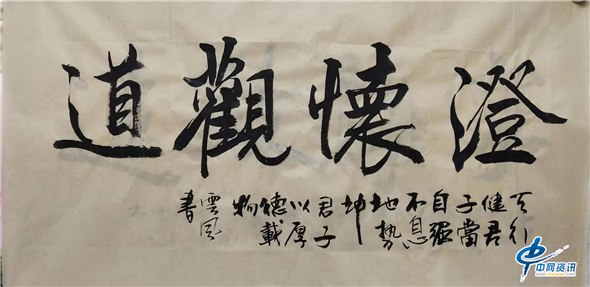 澄懷觀道
天行
健君
子當
自强
不息
地勢
坤
君子
以厚
德載
物
雲風
書
中网资讯